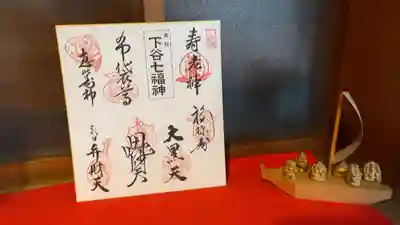 寿老神
福禄寿
東京
下谷七福神
大黒天
布袋尊
毘沙門天
恵比寿神
弁財天